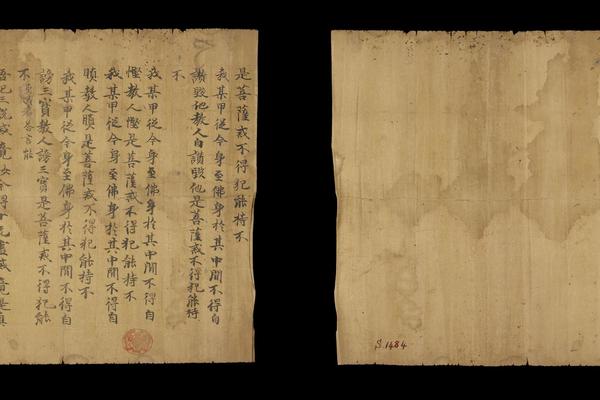 是菩薩戒不得犯能持不
我某甲從今身至佛身於其中間不得自
讚毀他教人自讚毀他是菩薩戒不得犯能持
不
我某甲從今身至佛身於其中間不得自
慳教人慳是菩薩戒不得犯能持不
我某甲從今身至佛身於其中間不得自
瞋教人瞋是菩薩戒不得犯能持不
我某甲從今身至佛身於其中間不得自
謗三寶教人謗三寶是菩薩戒不得犯能
不 答言能
三說戒竟汝今得十无盡戒竟是真
S.1484